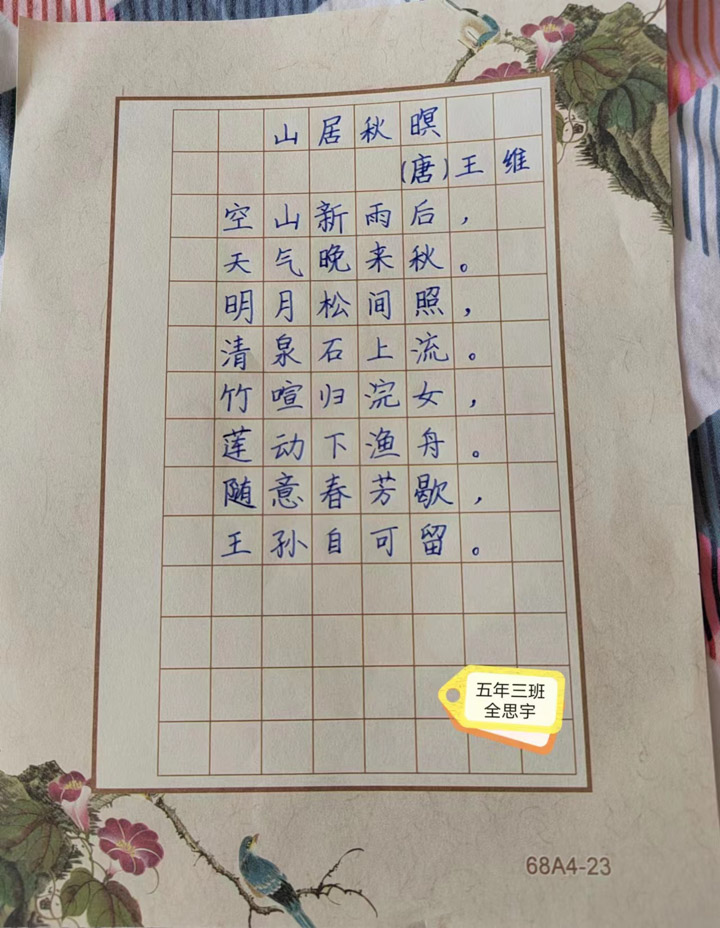 山居秋暝
(唐)王维
空山新雨后，
天气晚来秋。
明月松间照，
清泉石上流。
竹喧归浣女，
莲动下渔舟。
随意春芳歇，
王孙自可留。
五年三班
全思宇
68A4-23